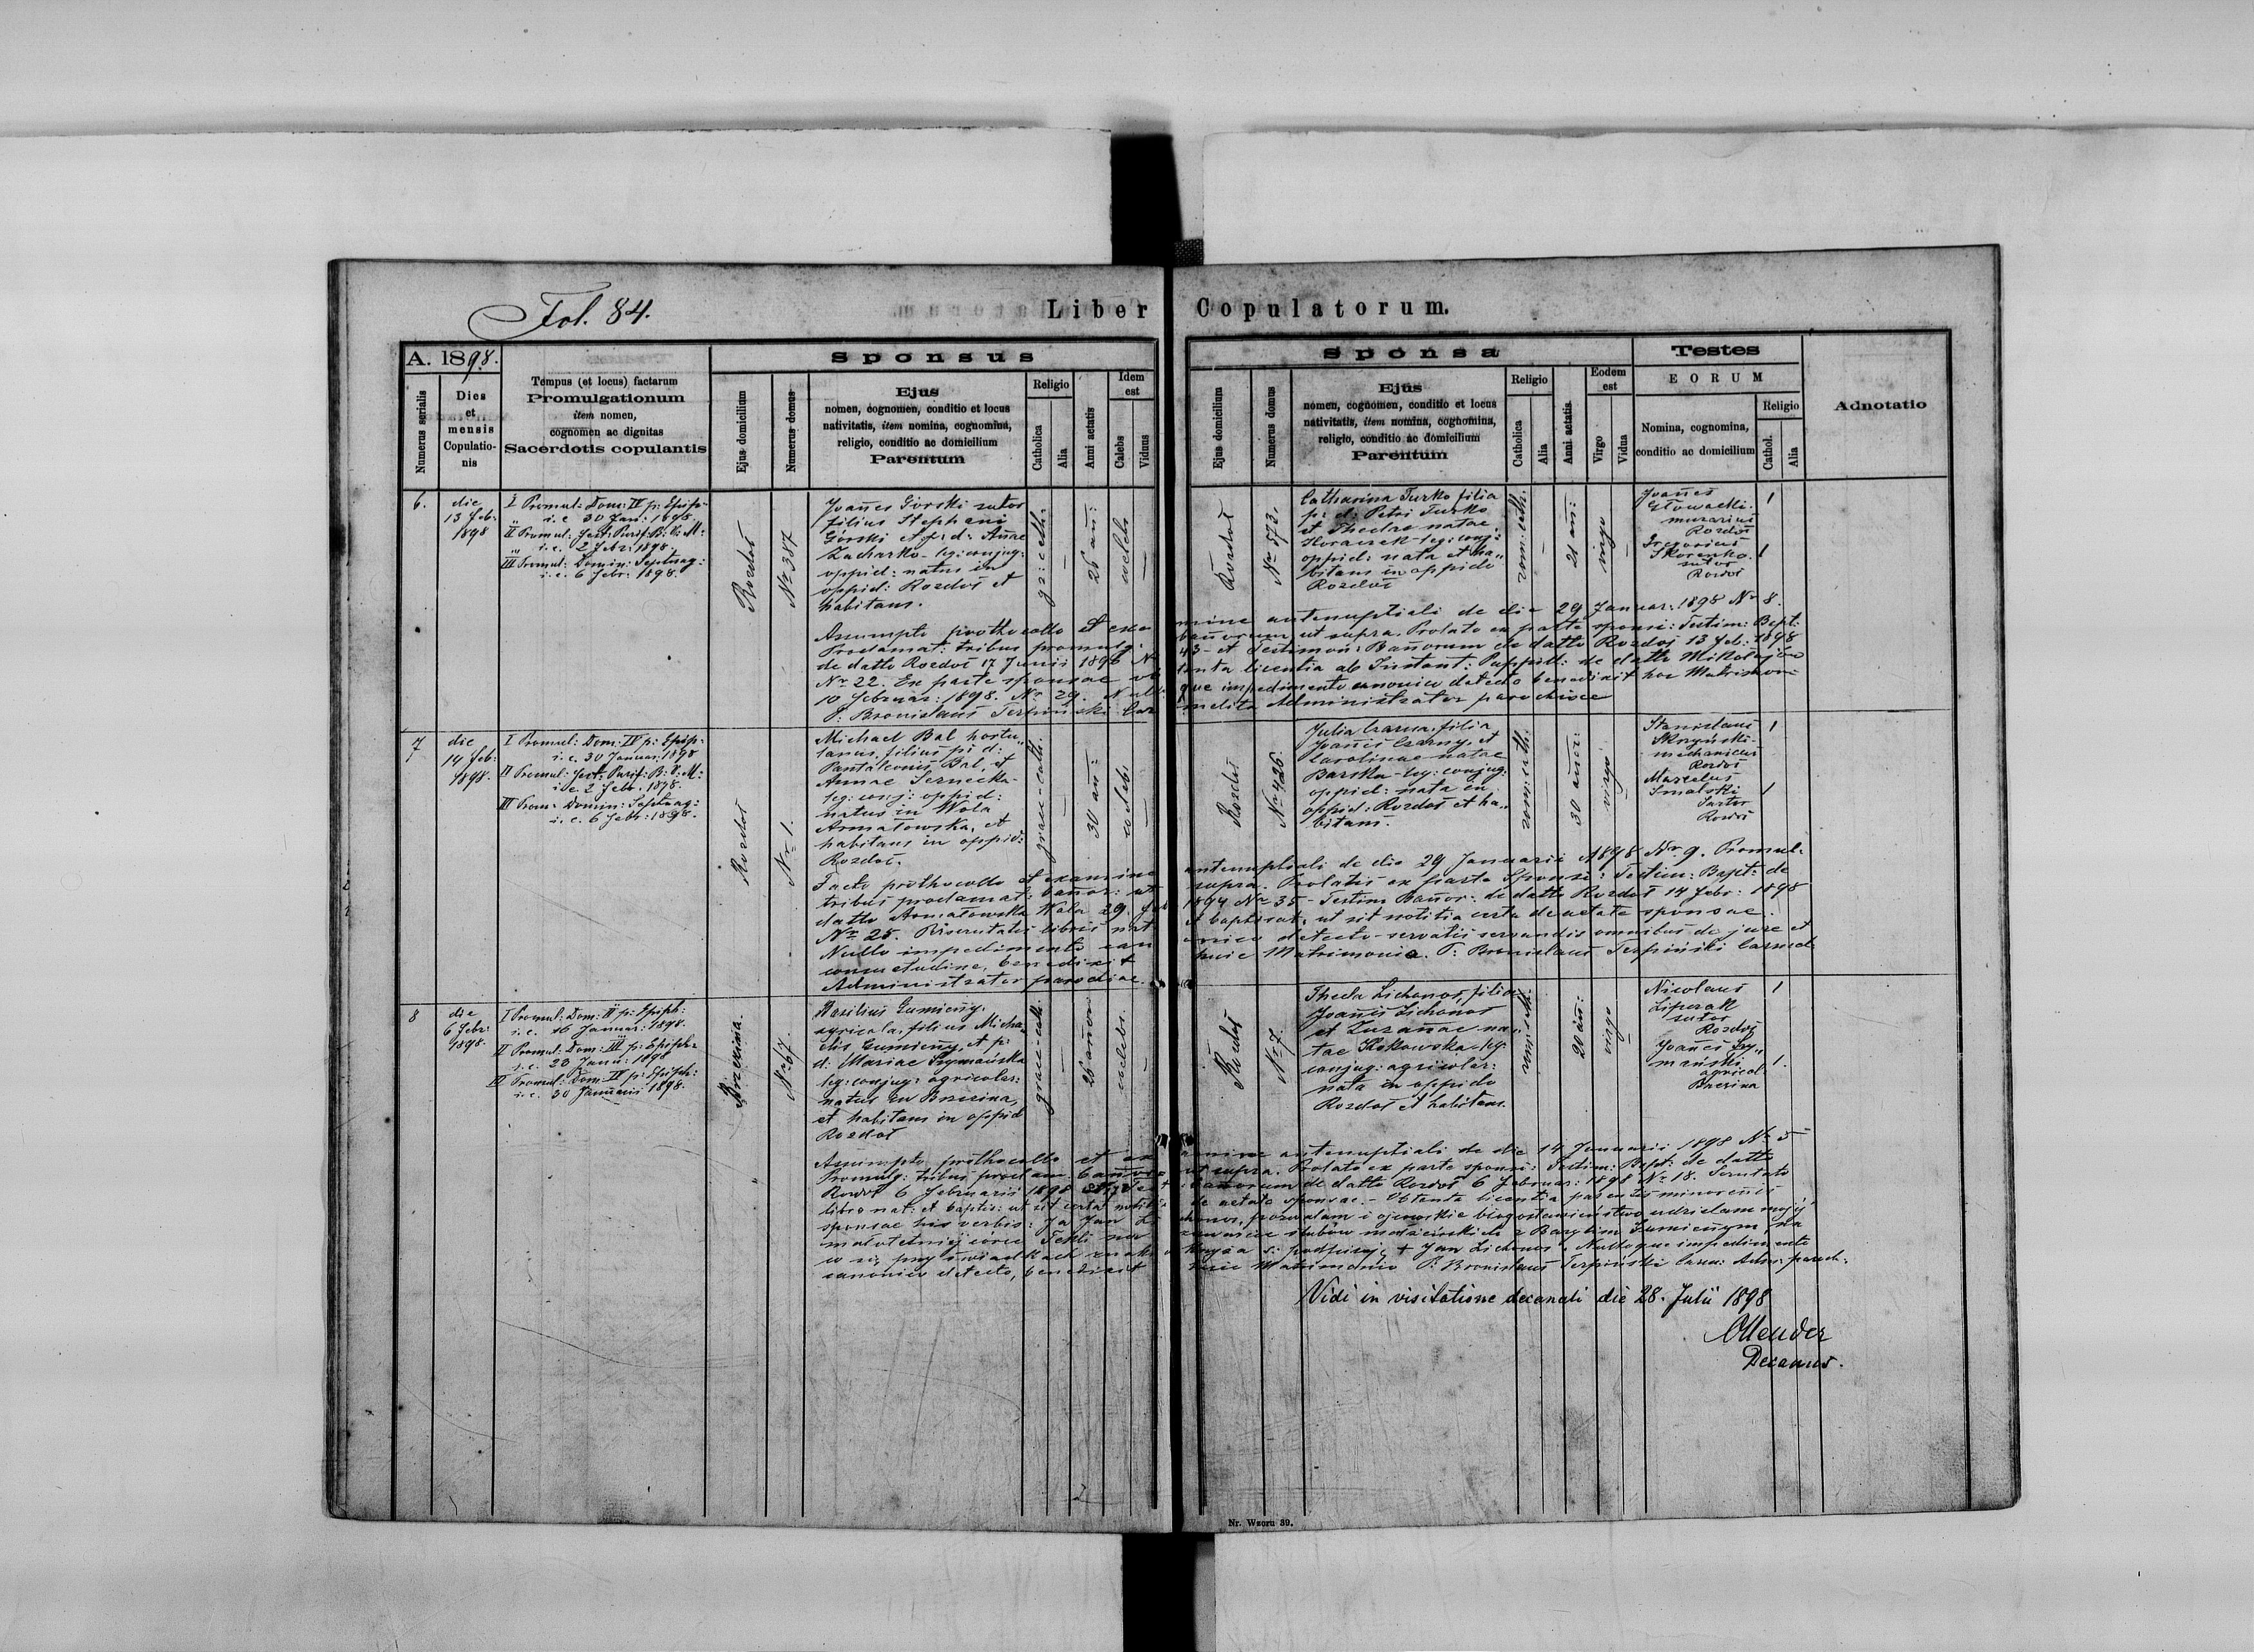 Fol. 84.
Liber Copulatorum.
A. 1898.
Numerus serialis
Dies
et
mensis
Copulatio-
nis
Tempus (et locus) factarum
Promulgationum
item nomen,
cognomen ac dignitas
Sacerdotis copulantis
Sponsus
Ejus domicilium
Numerus domus
Ejus
nomen, cognomen, conditio et locus
nativitatis, item nomina, cognomina,
religio, conditio ac domicilium
Parentum
Religio
Catholica
Alia
Anni aetatis
Idem
est
Caelebs
Viduus
Sponsa
Ejus domicilium
Numerus domus
Ejus
nomen, cognomen, conditio et locus
nativitatis, item nomina, cognomina,
religio, conditio ac domicilium
Parentum
Religio
Catholica
Alia
Anni aetatis
Eodem
est
Virgo
Vidua
Testes
EORUM
Nomina, cognomina,
conditio ac domicilium
Religio
Cathol.
Alia
Adnotatio
6.
die
13 Feb:
1898
I Promul: Dom: IV p: Epiph:
i. e 30 Jan: 1898
II Promul: fest: Purif: B: V: M:
i. e. 2 Febr: 1898.
III Promul: Domin: Septuag:
i. e. 6 Febr: 1898.
Rozdoł
Nº 387
Joañes Gorski sutor
filius Stephani
Gorski et p: d: Añae
Zacharko - leg: conjug:
oppid: natus in
oppid: Rozdoł et
habitans.
gr: cath:
—
26 añ:
coelebs
—
Rozdoł
Nº 573,
Catharina Turko filia
p: d: Petri Turko
et Theclae natae
Horaczek leg: conj:
oppid: nata et ha„
bitans in oppido
Rozdoł
rom: cath:
—
21 añ:
virgo
—
Joañes
Głowacki
murarius
Rozdoł
1
Gregorius
Skorenko
sutor
Rozdoł
1
Assumpto prothocollo et exa mine antenuptiali de die 29 Januar: 1898 Nº 8.
Proclamat: tribus promulg: bañorum ut supra. Prolato ex parte sponsi: Testim: Bapt:
de datto Rozdoł 17 Junii 1896 Nº 43 - et Testimon: Bañorum de datto Rozdoł 13 Feb: 1898
Nº 22. Ex parte sponsae ob tenta licentia ab Instant: Puppill: de datto Mikołajów
10 Februar: 1898. Nº 29. Nullo que impedimento canonico detecto benedixit hoc Matrimoni
P. Bronislaus Terpiński Car melita Administrator parochiae
7
die
14 Feb:
1898.
I Promul: Dom: IV p: Epiph:
i. e. 30 Januar: 1898
II Promul: fest: Purif: B: V: M:
i. e. 2 Febr. 1898.
III Prom: Domin: Septuag:
i. e. 6 Febr: 1898.
Rozdoł
Nº 1.
Michael Bal hortu„
lanus, filius p: d:
Pantaleonis Bal, et
Annae
leg: conj: oppid:
natus in Wola
Armatowska, et
habitans in oppid:
Rozdoł.
graec-cath:
—
30 añ:
coeleb:
—
Rozdoł
Nº 426.
Julia Czarna, filia
Joañis Czarny, et
Carolinae natae
Barska - leg: conjug:
oppid: nata in
oppid: Rozdoł et ha„
bitans.
rom: cath:
—
30 añor:
virgo
—
Stanislaus
Skrzyński
mechanicus
Rozdoł
1
Marcelus
Smalski
Sartor
Rozdoł
1
Facto prothocollo et examine antenuptiali de die 29 Januarii 1898 Nº 9. Promul:
tribus proclamat: bañor: ut supra. Prolatis ex parte Sponsi: Testim: Bapt: de
datto Armatowska Wola 29 1894 Nº 35 - Testim Bañor: de datto Rozdoł 14 Febr: 1898
Nº 25. Priscrutatis libris nat et baptisat: ut sit notitia certa de aetate sponsae.
Nullo impedimento can onico detecto - servatis servandis omnibus de jure et
consuetudine, benedixit huic Matrimonio. P. Bronislaus Terpiński Carmel:
Administrator parochiae.
8
die
6 Febr:
1898.
I Promul: Dom: II p: Epiph:
i. e. 16 Januar: 1898.
II Promul: Dom: III p: Epiph:
i. e. 23 Janu: 1898
III Promul: Dom: IV p: Epiph:
i. e. 30 Januarii 1898.
Brzezina.
Nº 67.
Basilius Gumieny,
agricola, filius Micha„
elis Gumieny, et p:
d: Mariae Szymańska
leg: conjug: agricolar:
natus in Brzezina,
et habitans in oppid
Rozdoł
graec-cath:
—
26 añor:
coelebs.
—
Rozdoł
Nº 7.
Thecla Lichonos, filia
Joañis Lichonos
et Zuzañae na„
tae Kokowska - leg:
conjug: agricolar:
nata in oppido
Rozdoł et habitans.
rom: cath:
—
20 añ:
virgo
—
Nicolaus
Lipczak
sutor
Rozdoł
1
Joañes Szy„
mański
agricol
Brzezina
1.
Assumpto prothocollo et ex amine antenuptiali de die 14 Januarii 1898 Nº 5
Promulg: tribus proclam: bañor: ut supra. Prolato ex parte sponsi: Testim: Bapt: de datto
Rozdoł 6 Februarii 1898 Nº 17 et bañorum de datto Rozdoł 6 Februar: 1898 Nº 18. Scrutato
libro nat: et baptis: ut sit certa notitia de aetate sponsae. - Obtenta licentia parentis minoreñis
sponsae his verbis: Ja Jan Li chonos, pozwalam i ojcowskie błogosławieństwo udzielam mojej
małoletniej córce Tekli na zawarcie ślubów małżeńskich z Bazylim Gumienym, na
co się przy świadkach znakiem krzyża ś: podpisuję + Jan Lichonos. Nulloque impedimento
canonico detecto, benedixit huic Matrimonio P: Bronislaus Terpiński Carm: Adm: paroch:
Vidi in visitatione decanali die 28. Julii 1898
Ollender
Decanus.
Nr. Wzoru 39.